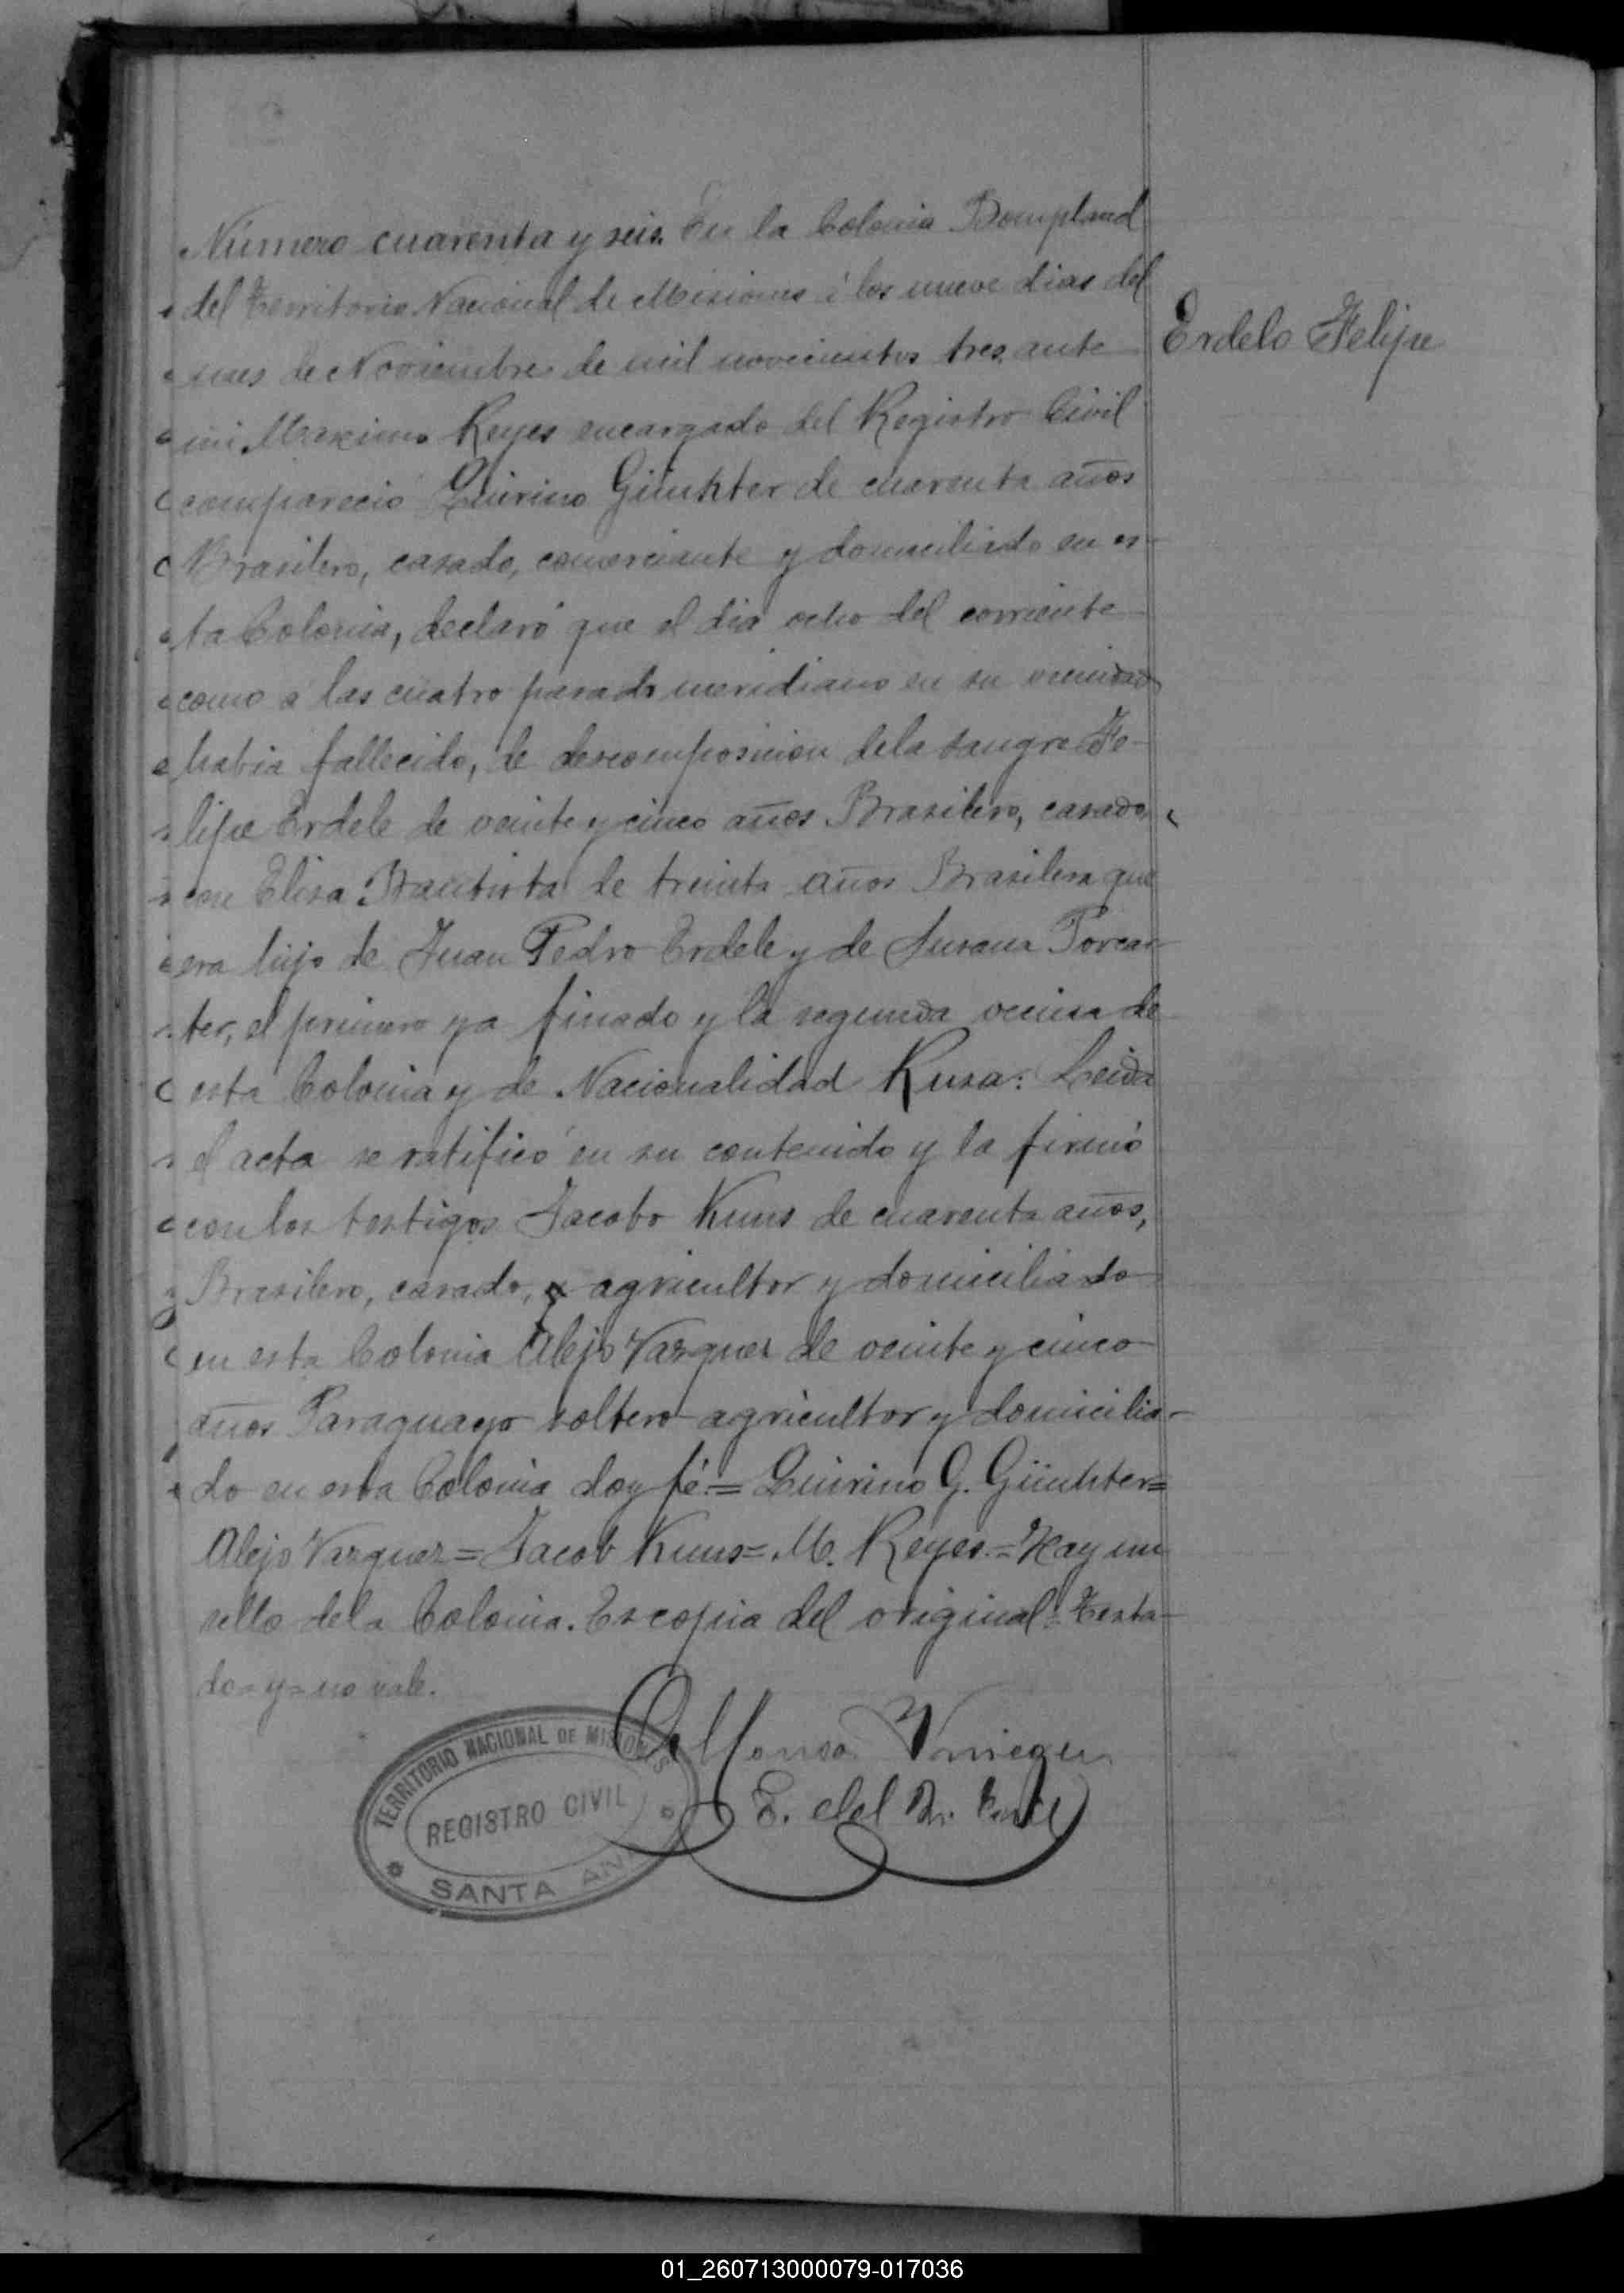 Número cuarenta y seis. En la Colonia Bompland
del Territorio Nacional de Misiones á los nueve dias del
mes de Noviembre de mil novecientos tres, ante
mi Maximo Reyes encargado del Registro Civil
compareció Quirino Günhter de cuarenta años
Brasilero, casado, comerciante y domiciliado en es-
ta Colonia, declaró que el dia ocho del corriente
como á las cuatro pasado meridiano en su vecindad
habia fallecido, de descomposicion dela sangre Fe-
lipe Erdele de veinte y cinco años Brasilero, casado,
con Elisa Bautista de treinta años Brasilera que
era hijo de Juan Pedro Erdele y de Susana Porcas-
ter, el primero ya finado y la segunda vecina de
esta Colonia y de Nacionalidad Rusa: Leida
el acta se ratificó en su contenido y la firmó
con los testigos Jacobo Kuns de cuarenta años,
Brasilero, casado, y agricultor y domiciliado
en esta Colonia Alejo Vazquez de veinte y cinco
años Paraguayo soltero agricultor y domicilia-
do en esta Colonia doy fé.= Quirino G. Günhter=
Alejo Vazquez= Jacob Kuns= M. Reyes.= Hay un
sello dela Colonia. Es copia del original= Testa-
do= y= no vale.
Erdelo Felipe
Alfonso
E. del R. Civil
TERRITORIO NACIONAL DE MISIONES
REGISTRO CIVIL
SANTA ANA
01_260713000079-017036